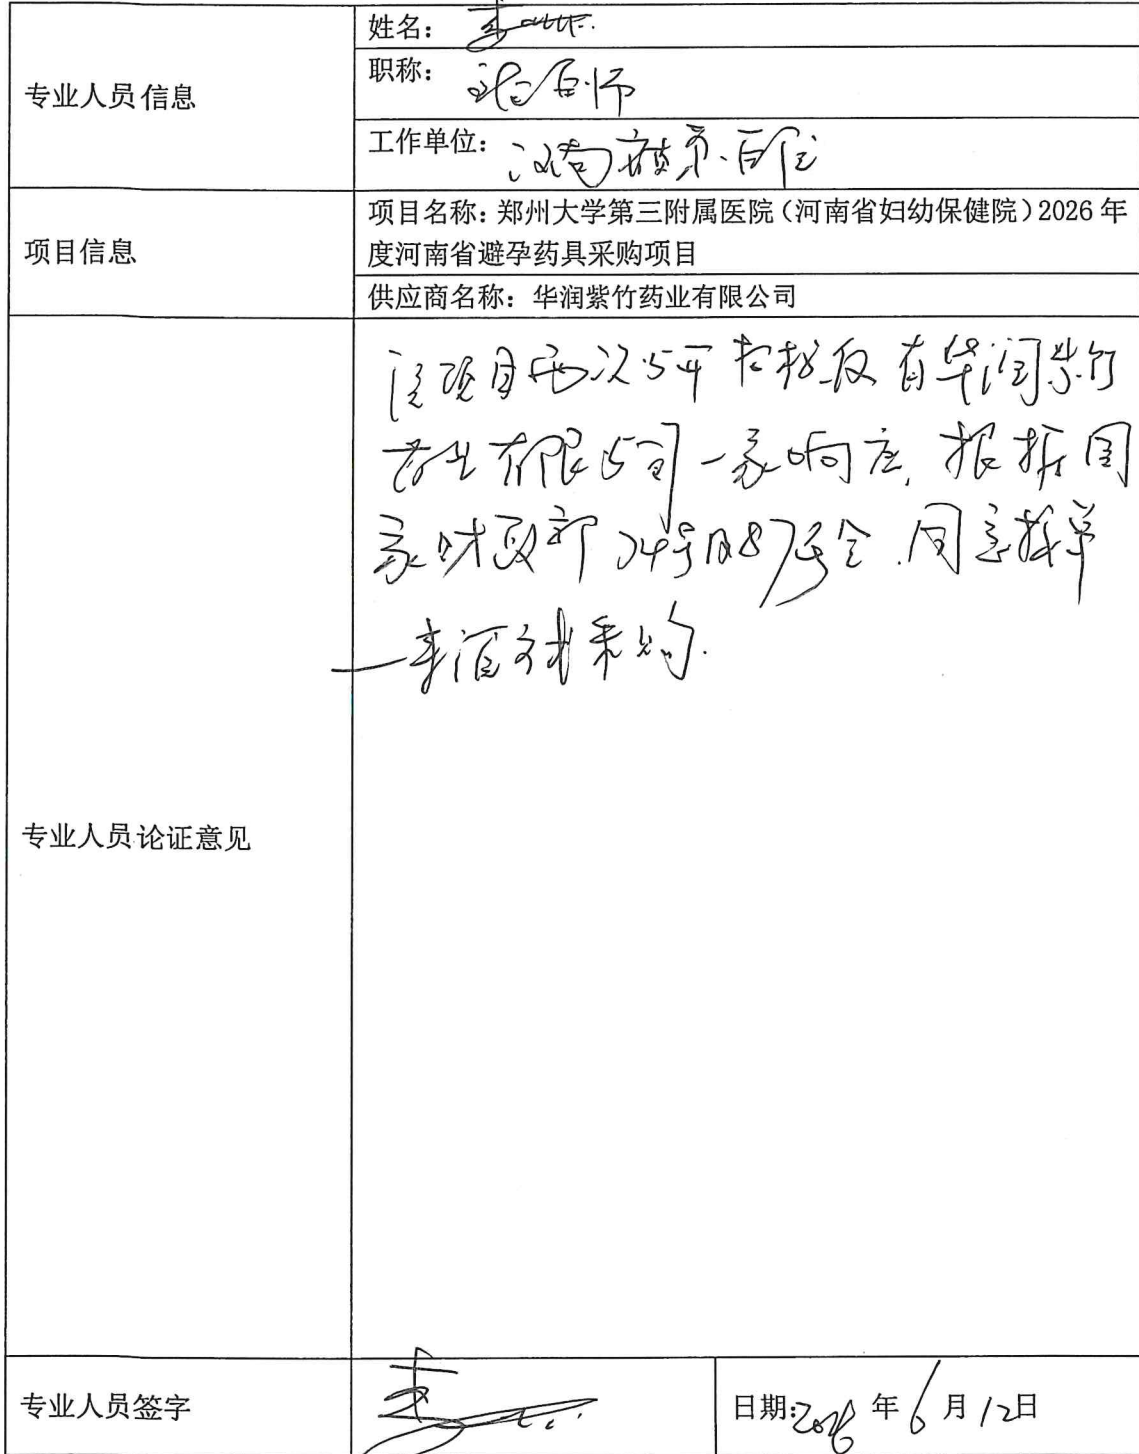 姓名：
专业人员信息
职称：
工作单位：
项目信息
项目名称：郑州大学第三附属医院（河南省妇幼保健院）2026 年
度河南省避孕药具采购项目
供应商名称：华润紫竹药业有限公司
专业人员论证意见
该项目两次公开招标仅有华润紫竹
药业有限公司一家响应，根据国
家财政部74号及87号令.同意按单
一来源方式采购.
专业人员签字
日期:2026 年 6 月 12日